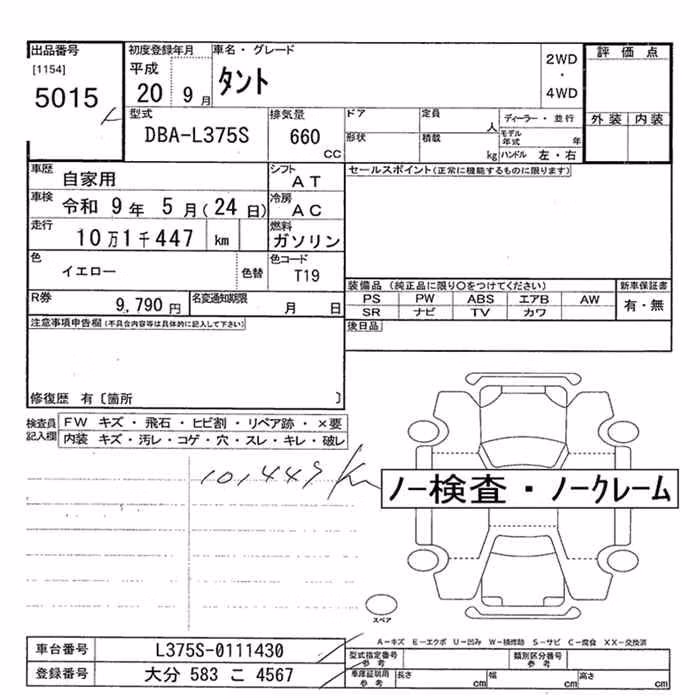 出品番号 初度登録年月 車名・グレード 評価点
[1154] 平成 2WD
5015 20 9月 タント ・
4WD
型式 排気量 ドア 定員 ディーラー・並行 外装 内装
DBA-L375S 660 人 モデル年式 年
CC 形状 積載 kg ハンドル 左・右
車歴 自家用 シフト AT セールスポイント(正常に機能するものに限ります)
車検 令和 9年 5月(24日) 冷房 AC
走行 10万1千447 km 燃料 ガソリン
色 イエロー 色替 色コード T19
装備品 (純正品に限り○をつけてください) 新車保証書
R券 9,790円 名変通知期限 月 日 PS PW ABS エアB AW 有・無
SR ナビ TV カワ
注意事項申告欄(不具合内容等は具体的に記入して下さい) 後日品
修復歴 有〔箇所 〕
検査員記入欄 FW キズ・飛石・ヒビ割・リペア跡・×要
内装 キズ・汚レ・コゲ・穴・スレ・キレ・破レ
101,449 Km
ノー検査・ノークレーム
スペア
A-キズ E-エクボ U-凹み W-補修跡 S-サビ C-腐食 XX-交換済
車台番号 L375S-0111430 型式指定番号 参考 類別区分番号 参考
登録番号 大分 583 こ 4567 車庫証明用 参考 長さ cm 幅 cm 高さ cm